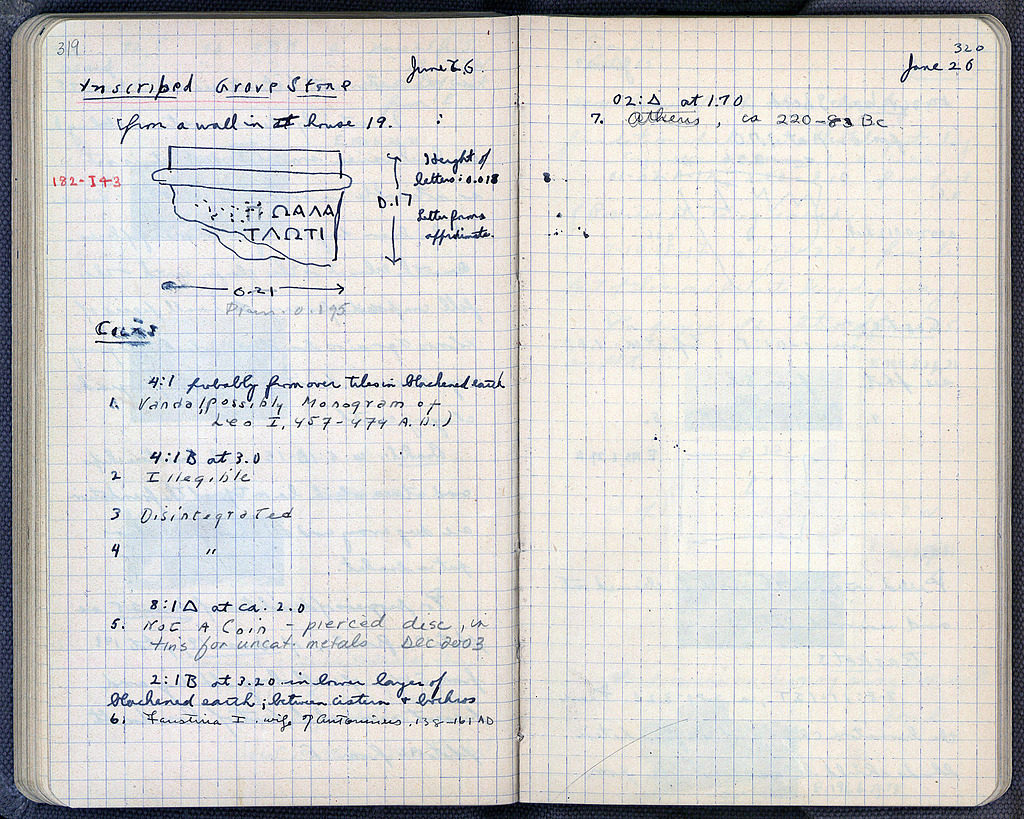 319
June 26.
Inscribed Grave Stone
from a wall in house 19. :
182-I43
Height of
letters: 0.018
0.17
Letter forms
approximate.
ΩΑΛΑ
ΤΛΩΤΙ
0.21
Diam. 0.195
Coins
4:1 probably from over tiles in blackened earth
1. Vandal (Possibly Monogram of
Leo I, 457-474 A.D.)
4:1B at 3.0
2 Illegible
3 Disintegrated
4 "
8:1Δ at ca. 2.0
5. Not A Coin - pierced disc, in
tins for uncat. metals Dec 2003
2:1B at 3.20 in lower layer of
blackened earth; between cistern + bothros
6. Faustina I. wife of Antoninus, 138-161 AD
320
June 26
02:Δ at 1.70
7. Athens, ca 220-83 BC